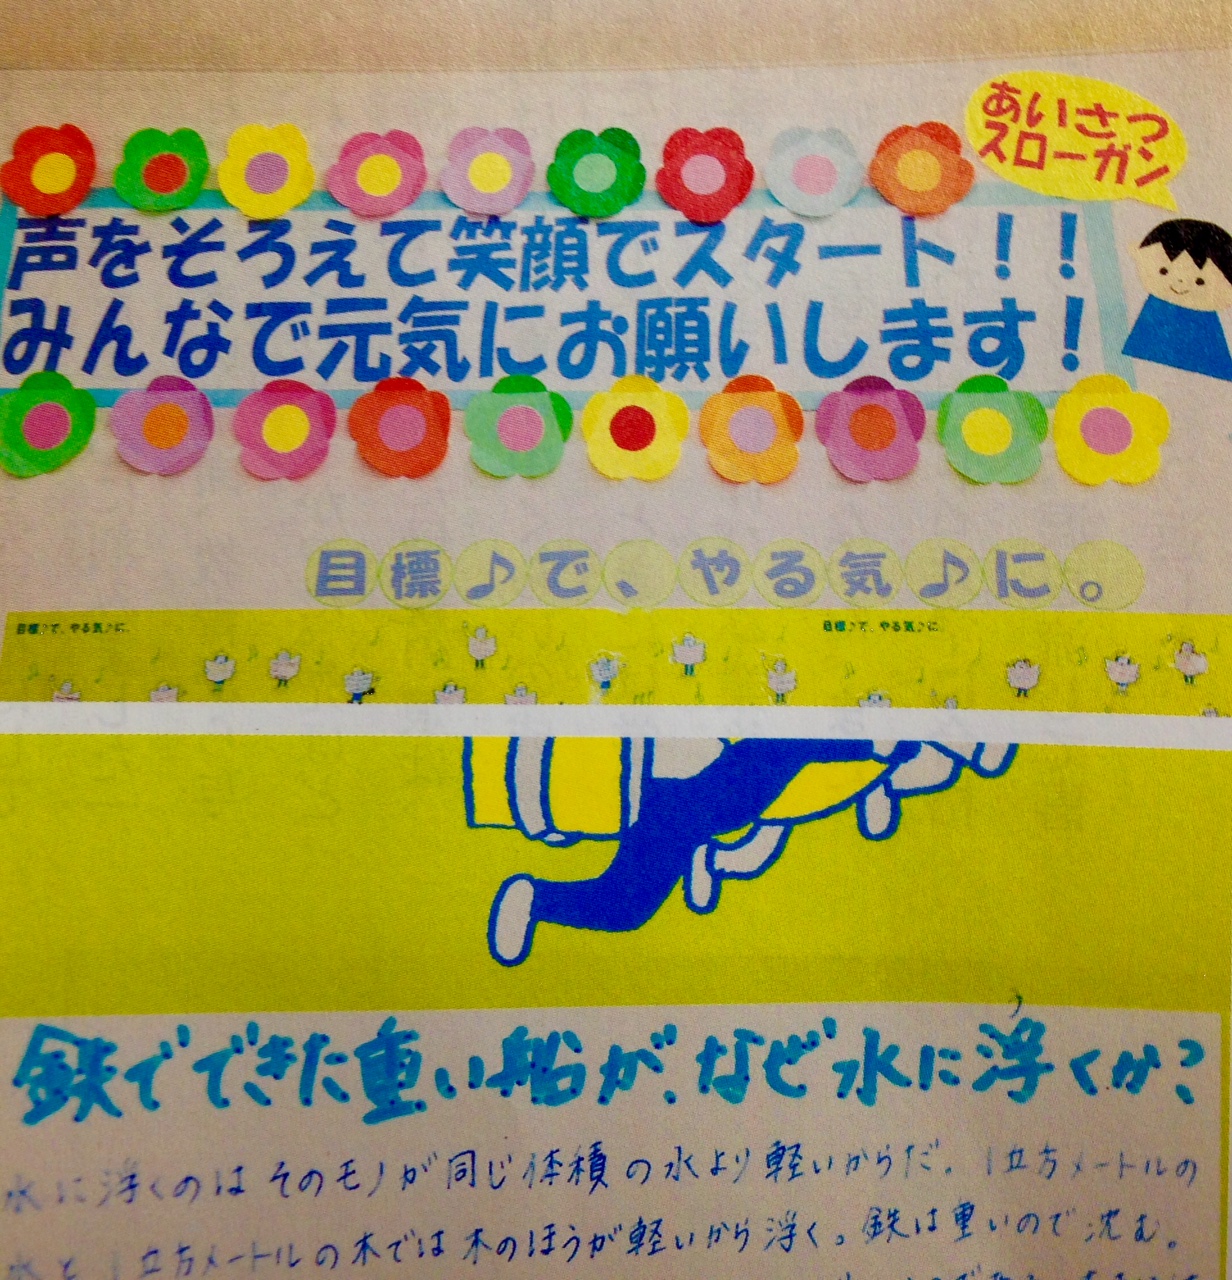 あいさつ
スローガン
声をそろえて笑顔でスタート！！
みんなで元気にお願いします！
目標♪で、やる気♪に。
目標♪で、やる気♪に。
目標♪で、やる気♪に。
鉄でできた重い船が、なぜ水に浮くか？
水に浮くのはそのモノが同じ体積の水より軽いからだ。1立方メートルの
水と1立方メートルの木では木のほうが軽いから浮く。鉄は重いので沈む。